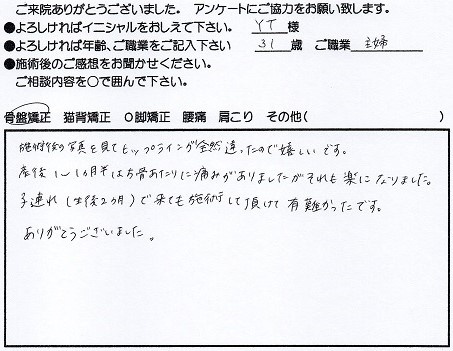 ご来院ありがとうございました。 アンケートにご協力をお願い致します。
●よろしければイニシャルをおしえて下さい。 YT 様
●よろしければ年齢、ご職業をご記入下さい 31 歳 ご職業 主婦
●施術後のご感想をお聞かせください。
ご相談内容を〇で囲んで下さい。
骨盤矯正 猫背矯正 O脚矯正 腰痛 肩こり その他( )
施術後の写真を見てヒップラインが全然違ったので嬉しいです。
産後1〜1ヵ月半は右骨あたりに痛みがありましたがそれも楽になりました。
子連れ(生後2ヵ月)で来ても施術して頂けて有難かったです。
ありがとうございました。